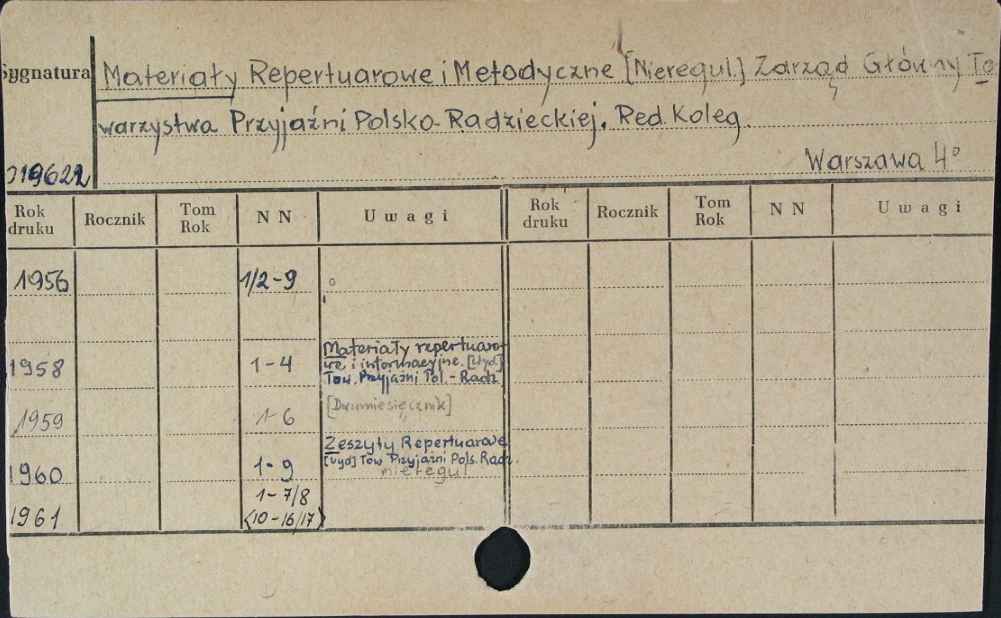 Sygnatura Materiały Repertuarowe i Metodyczne [Nieregul.] Zarząd Główny To
warzystwa Przyjaźni Polsko-Radzieckiej. Red. Koleg.
Warszawa 4°
019622
Rok druku Rocznik Tom Rok NN Uwagi Rok druku Rocznik Tom Rok NN Uwagi
1956 1/2-9
Materiały repertuaro-
1958 1-4 we i informacyjne. [Wyd]
Tow. Przyjaźni Pol.-Radz
1959 1-6 [Dwumiesięcznik]
Zeszyty Repertuarowe
1960 1-9 [Wyd] Tow Przyjaźni Pols. Radz.
nieregul
1-7/8
1961 (10-16/17)